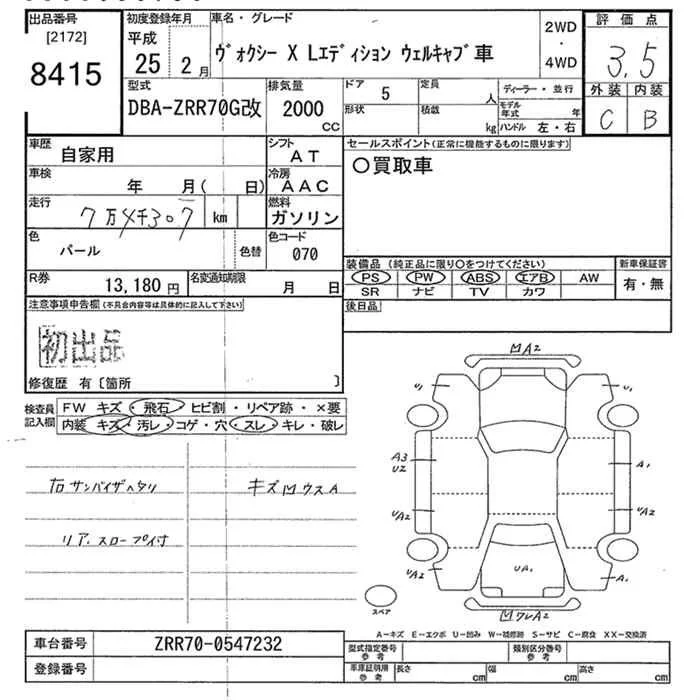 出品番号
[2172]
8415
初度登録年月
平成
25 2月
車名・グレード
ヴォクシー X Lエディション ウェルキャブ車
2WD
・
4WD
評価点
3.5
外装 内装
C B
型式
DBA-ZRR70G改
排気量
2000
CC
ドア 5
形状
定員 人
積載 kg
ディーラー・並行
モデル年式 年
ハンドル 左・右
車歴 自家用
シフト AT
車検 年 月( 日)
冷房 AAC
走行 7万4千307 km
燃料 ガソリン
色 パール 色替
色コード 070
R券 13,180円
名変通知期限 月 日
セールスポイント(正常に機能するものに限ります)
○買取車
装備品(純正品に限り○をつけてください)
PS PW ABS エアB AW
SR ナビ TV カワ
新車保証書
有・無
後日品
注意事項申告欄(不具合内容等は具体的に記入して下さい)
初出品
修復歴 有〔箇所 〕
検査員記入欄
FW キズ・飛石・ヒビ割・リペア跡・×要
内装 キズ・汚レ・コゲ・穴・スレ・キレ・破レ
右サンバイザヘタリ
キズMウスA
リア.スロープ付
MA2
U1
U1
A3
U2
A1
UA2
UA2
UA2
UA1
A1
スペア
MワレA2
A-キズ E-エクボ U-凹み W-補修跡 S-サビ C-腐食 XX-交換済
車台番号 ZRR70-0547232
登録番号
型式指定番号 参考
類別区分番号 参考
車庫証明用 参考
長さ cm
幅 cm
高さ cm